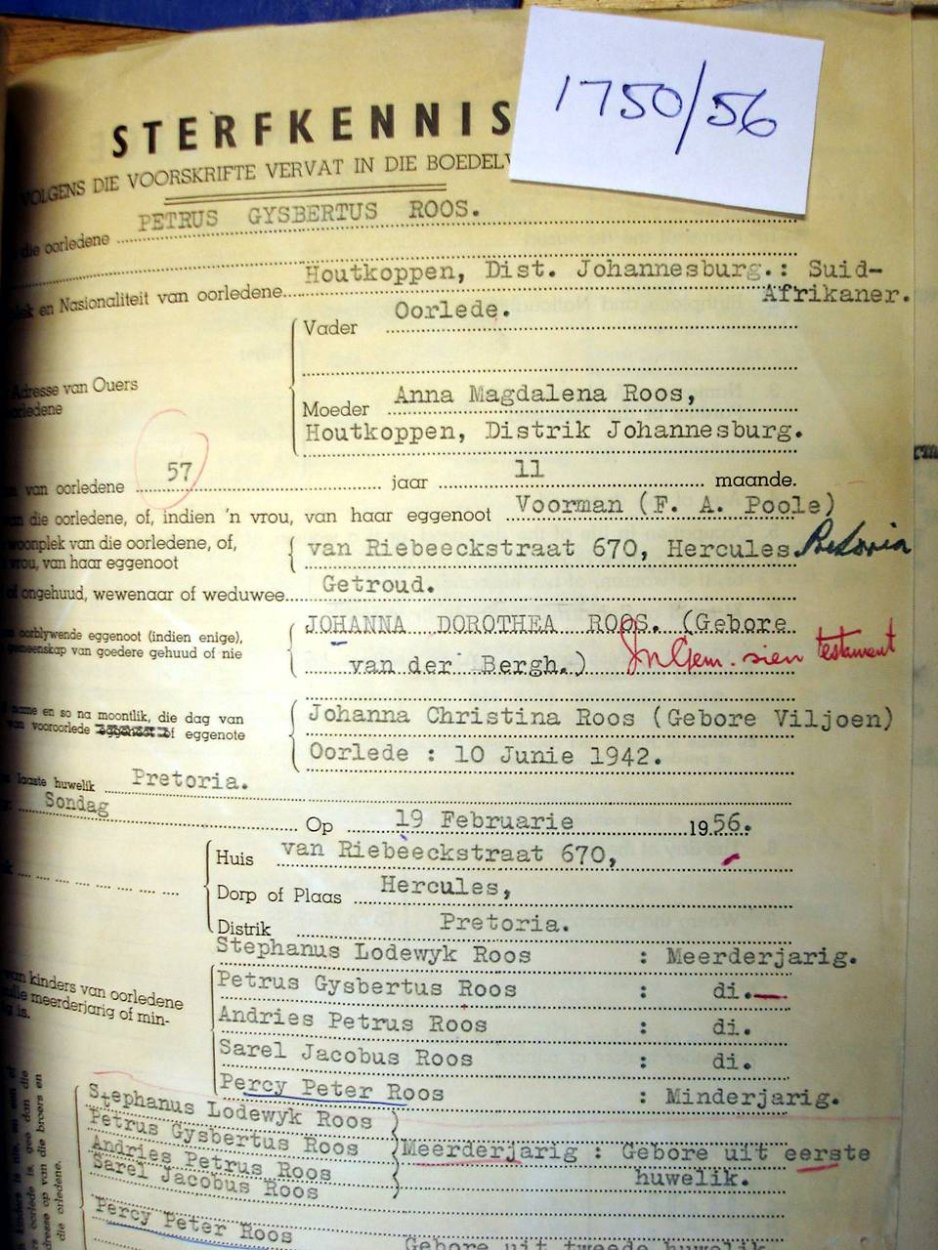 1750/56
STERFKENNIS
VOLGENS DIE VOORSKRIFTE VERVAT IN DIE
die oorledene PETRUS GYSBERTUS ROOS.
en Nasionaliteit van oorledene Houtkoppen, Dist. Johannesburg.: Suid-
Afrikaner.
Adresse van Ouers
Vader Oorlede.
Moeder Anna Magdalena Roos,
Houtkoppen, Distrik Johannesburg.
van oorledene 57 jaar 11 maande.
die oorledene, of, indien 'n vrou, van haar eggenoot Voorman (F. A. Poole)
woonplek van die oorledene, of,
vrou, van haar eggenoot
van Riebeeckstraat 670, Hercules Pretoria
of ongehuud, wewenaar of weduwee Getroud.
oorblywende eggenoot (indien enige),
gemeenskap van goedere gehuud of nie
JOHANNA DOROTHEA ROOS. (Gebore
van der Bergh.) In Gem. sien testament
name en so na moontlik, die dag van
van vooroorlede of eggenote
Johanna Christina Roos (Gebore Viljoen)
Oorlede : 10 Junie 1942.
laaste huwelik Pretoria.
Sondag Op 19 Februarie 1956.
Huis van Riebeeckstraat 670,
Dorp of Plaas Hercules,
Distrik Pretoria.
van kinders van oorledene
meerderjarig of min-
is.
Stephanus Lodewyk Roos : Meerderjarig.
Petrus Gysbertus Roos : di.
Andries Petrus Roos : di.
Sarel Jacobus Roos : di.
Percy Peter Roos : Minderjarig.
Stephanus Lodewyk Roos
Petrus Gysbertus Roos
Andries Petrus Roos
Sarel Jacobus Roos
Meerderjarig : Gebore uit eerste
huwelik.
Percy Peter Roos
Gebore uit tweede huwelik